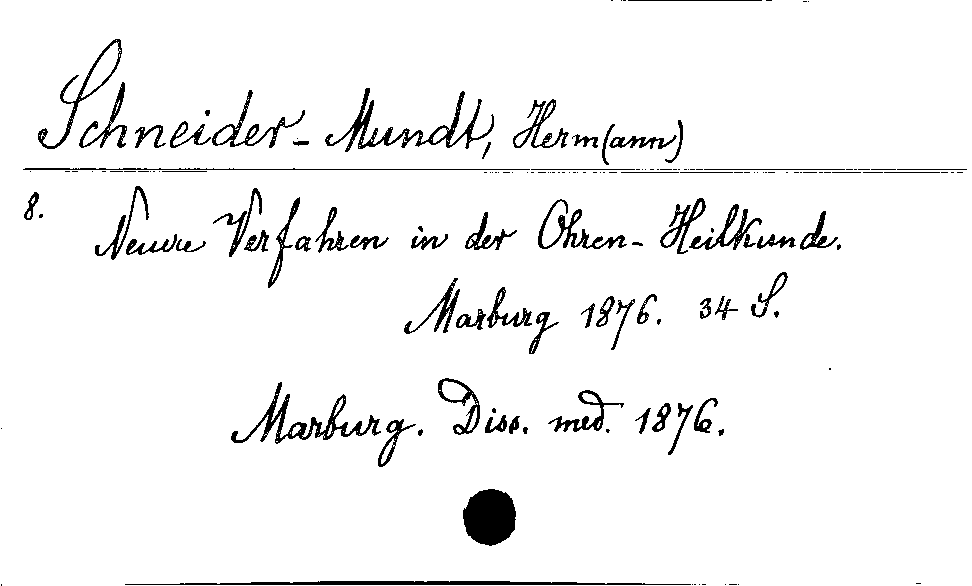 Schneider-Mundt, Herm(ann)
8. Neuere Verfahren in der Ohren-Heilkunde.
Marburg 1876. 34 S.
Marburg. Diss. med. 1876.